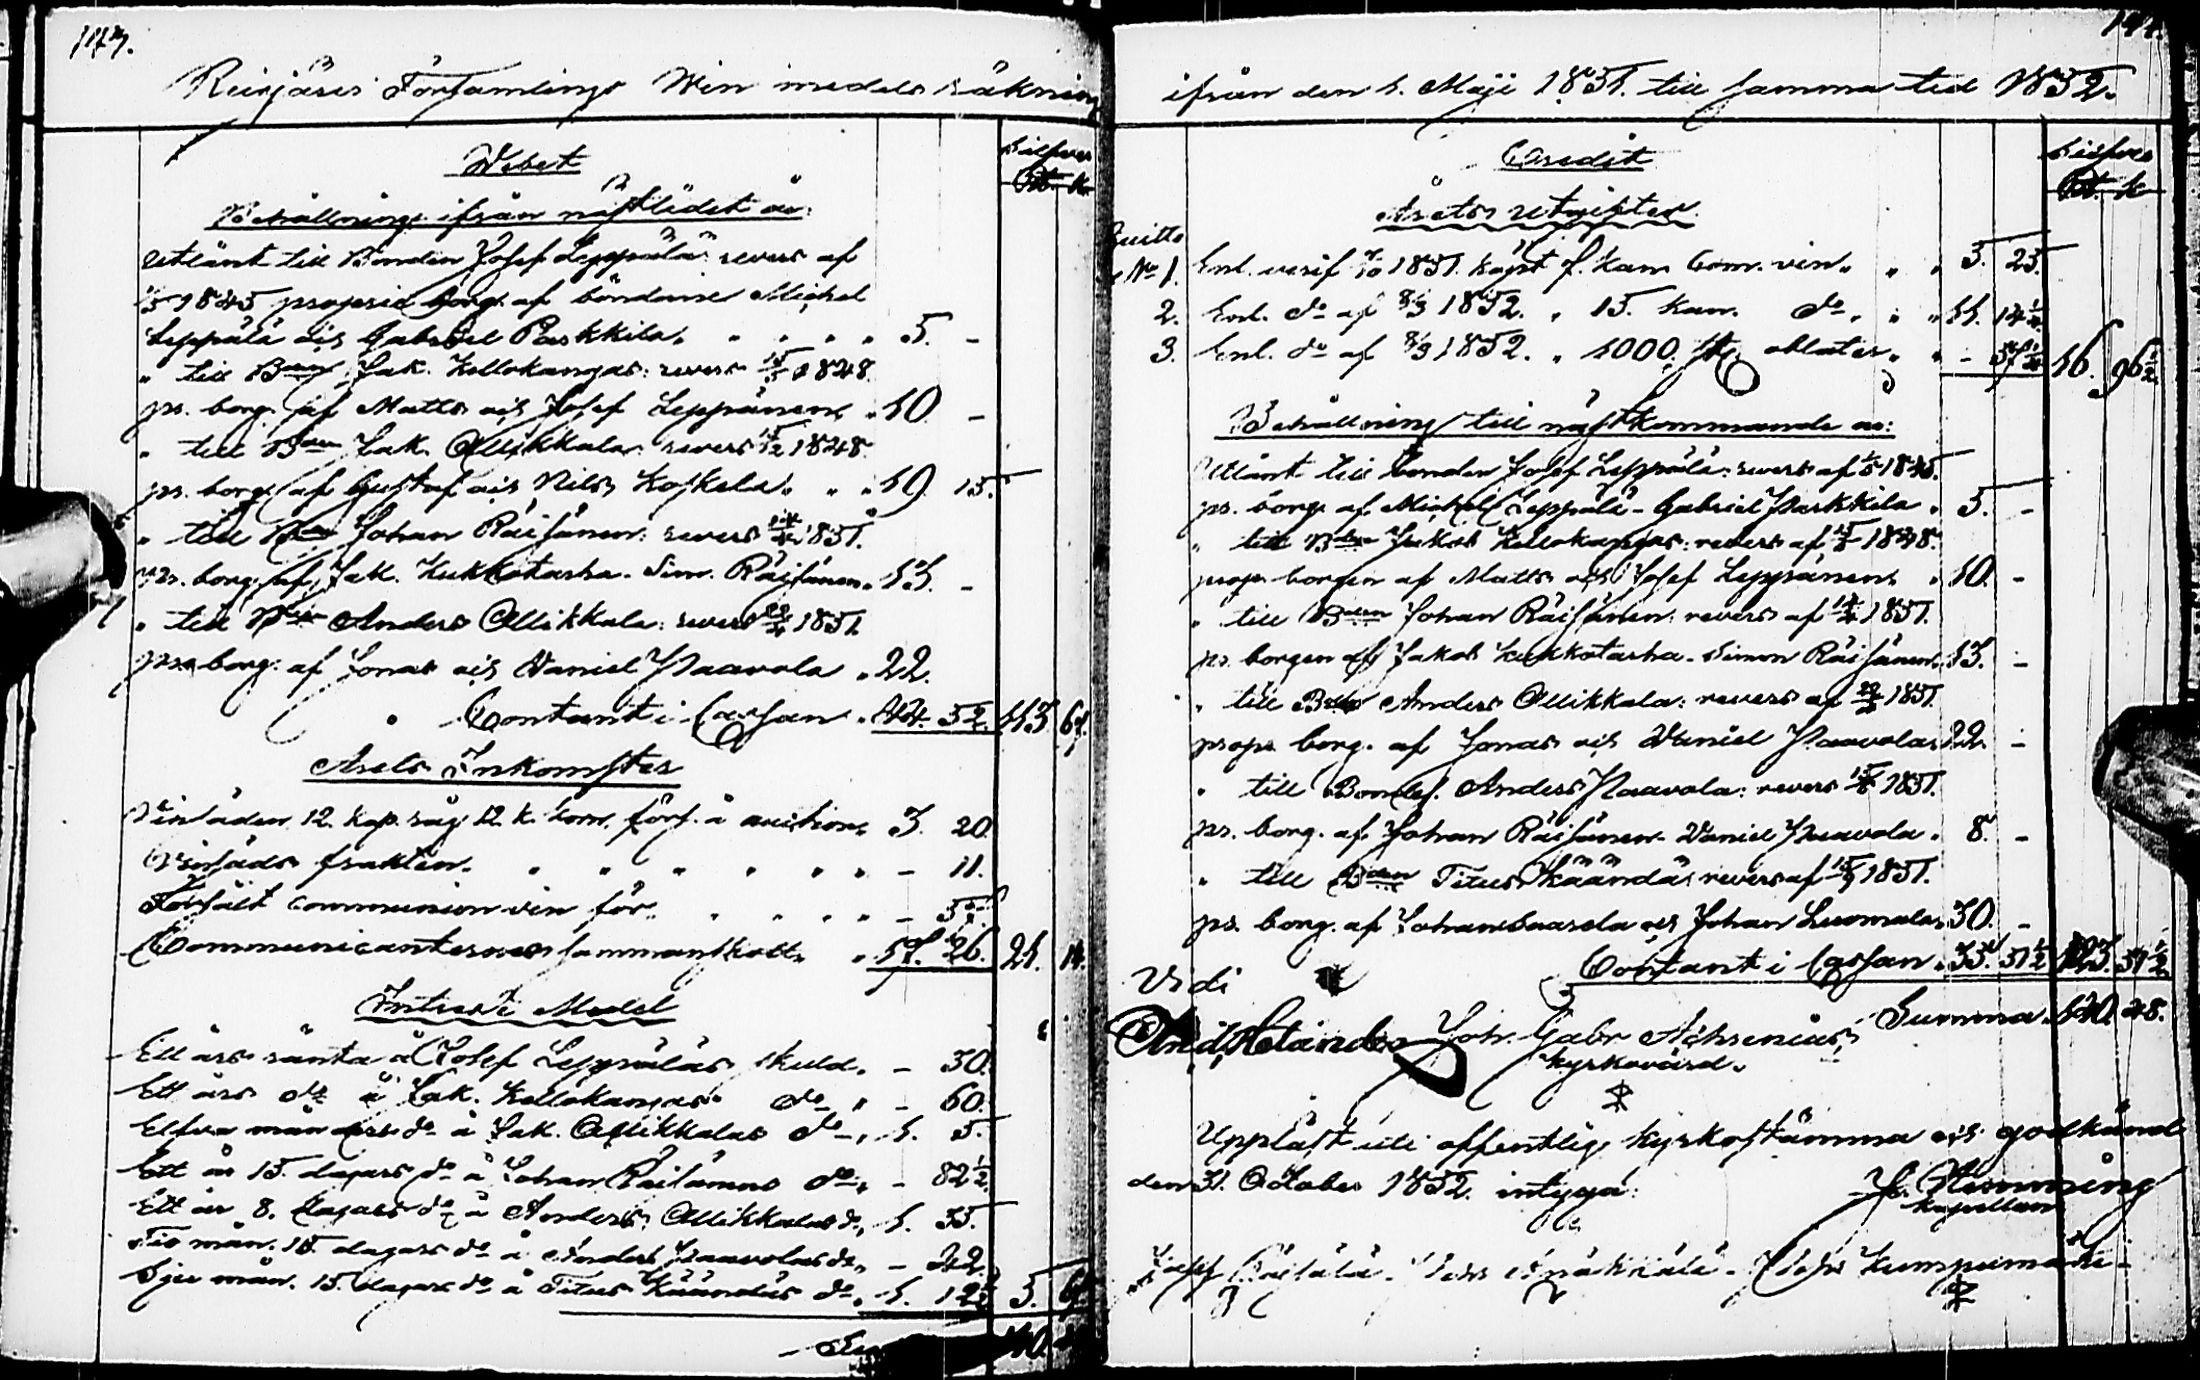 143.
Reisjärvi Församlings Win medels räkning
Debet
Silfver
Rb. k.
Behållning ifrån näst lidet år:
Utlånt till Bonden Josef Leppälä: revers af
1/5 1845 proprie borg. af bönderne Michel
Leppälä och Gabriel Parkkila. " " " " 5. -
" till Bden Jak. Kellokangas: revers 15/5 1848.
pr. borg. af Matts och Josef Leppänen, " 10. -
" till Bden Jak. Ollikkala: revers 15/12 1848.
pr. borg. af Gustaf och Nils Koskela. " " " 19. 15.
" till Bden Johan Räisänen: revers 14/4 1851.
pr. borg. af Jak. Kukkotarha. Sim. Räisänen. 13. -
" till Bden Anders Ollikkala: revers 22/4 1851.
pr. borg. af Jonas och Daniel Paavola. " 22.
" Contant i Cassan. " 44. 52. 113. 67.
Årets Inkomster
Vinsäden 12. kap. råg 12. k. korn, förs. å auction, 3. 20.
Vinsäds frakten. " " " " " " " - 11.
Försålt communion vin för. " " " " -
Communicanternes sammanskott. " 17. 26. 21. 14.
Intresse Medel
Ett års ränta å Josef Leppäläs skuld. - 30.
Ett års do å Jak. Kellokangas do " - 60.
Elfva månaders do å Jak. Ollikkalas do, 1. 5.
Ett år 15. dagars do å Johan Räisänens do " - 82 1/2.
Ett år 8. dagars do å Anders Ollikkalas do, 1. 35.
Tio mån. 15. dagars do å Anders Paavolas do, - 42.
Sju mån. 15. dagars do å Titus Kääntäs do, 1. 12 1/2 5. 67.
144.
ifrån den 1. Maji 1851. till samma tid 1852.
Credit
Silfver
Rb. k
Årets Utgifter.
Quitto
No 1. Enl. verif 7/10 1851. köpt 7. kan Com. vin. " " 5. 25.
2. Enl. do af 8/3 1852. " 15. kan. do. " " 11. 14 1/4.
3. Enl. do af 8/3 1852. " 1000. st. oblater. " " - 57 1/4 16. 96 1/2.
Behållning till nästkommande år:
Utlånt till bonden Josef Leppälä: revers af 1/5 1845.
pr. borg. af Michel Leppälä - Gabriel Parkkila " 5. -
" till Bden Jakob Kellokangas: revers af 15/5 1848.
propr. borgen af Matts och Josef Leppänen, " 10. -
" till Bden Johan Räisänen: revers af 14/4 1851.
pr. borgen af Jakob Kukkotarha - Simon Räisänen. 13. -
" till Bden Anders Ollikkala: revers af 22/4 1851.
propr. borg. af Jonas och Daniel Paavola. 22. -
" till Bonden Anders Paavola: revers 15/6 1851.
pr. borg. af Johan Räisänen - Daniel Paavola. " 8. -
" till Bden Titus Kääntä: revers af 15/9 1851.
pr. borg. af Johan Saarela och Johan Luomala. 30. -
Contant i Cassan. 35. 51 1/2 123. 51 1/2
Vidi
Summa. 140. 48.
And. Helander Joh. Gabr Achrenius,
kyrkovärd.
Uppläst uti offentlig kyrkostämma och godkänd
den 31. October 1852. intyga:
J. Hemming
kapellan
Josef Kumpumäki -